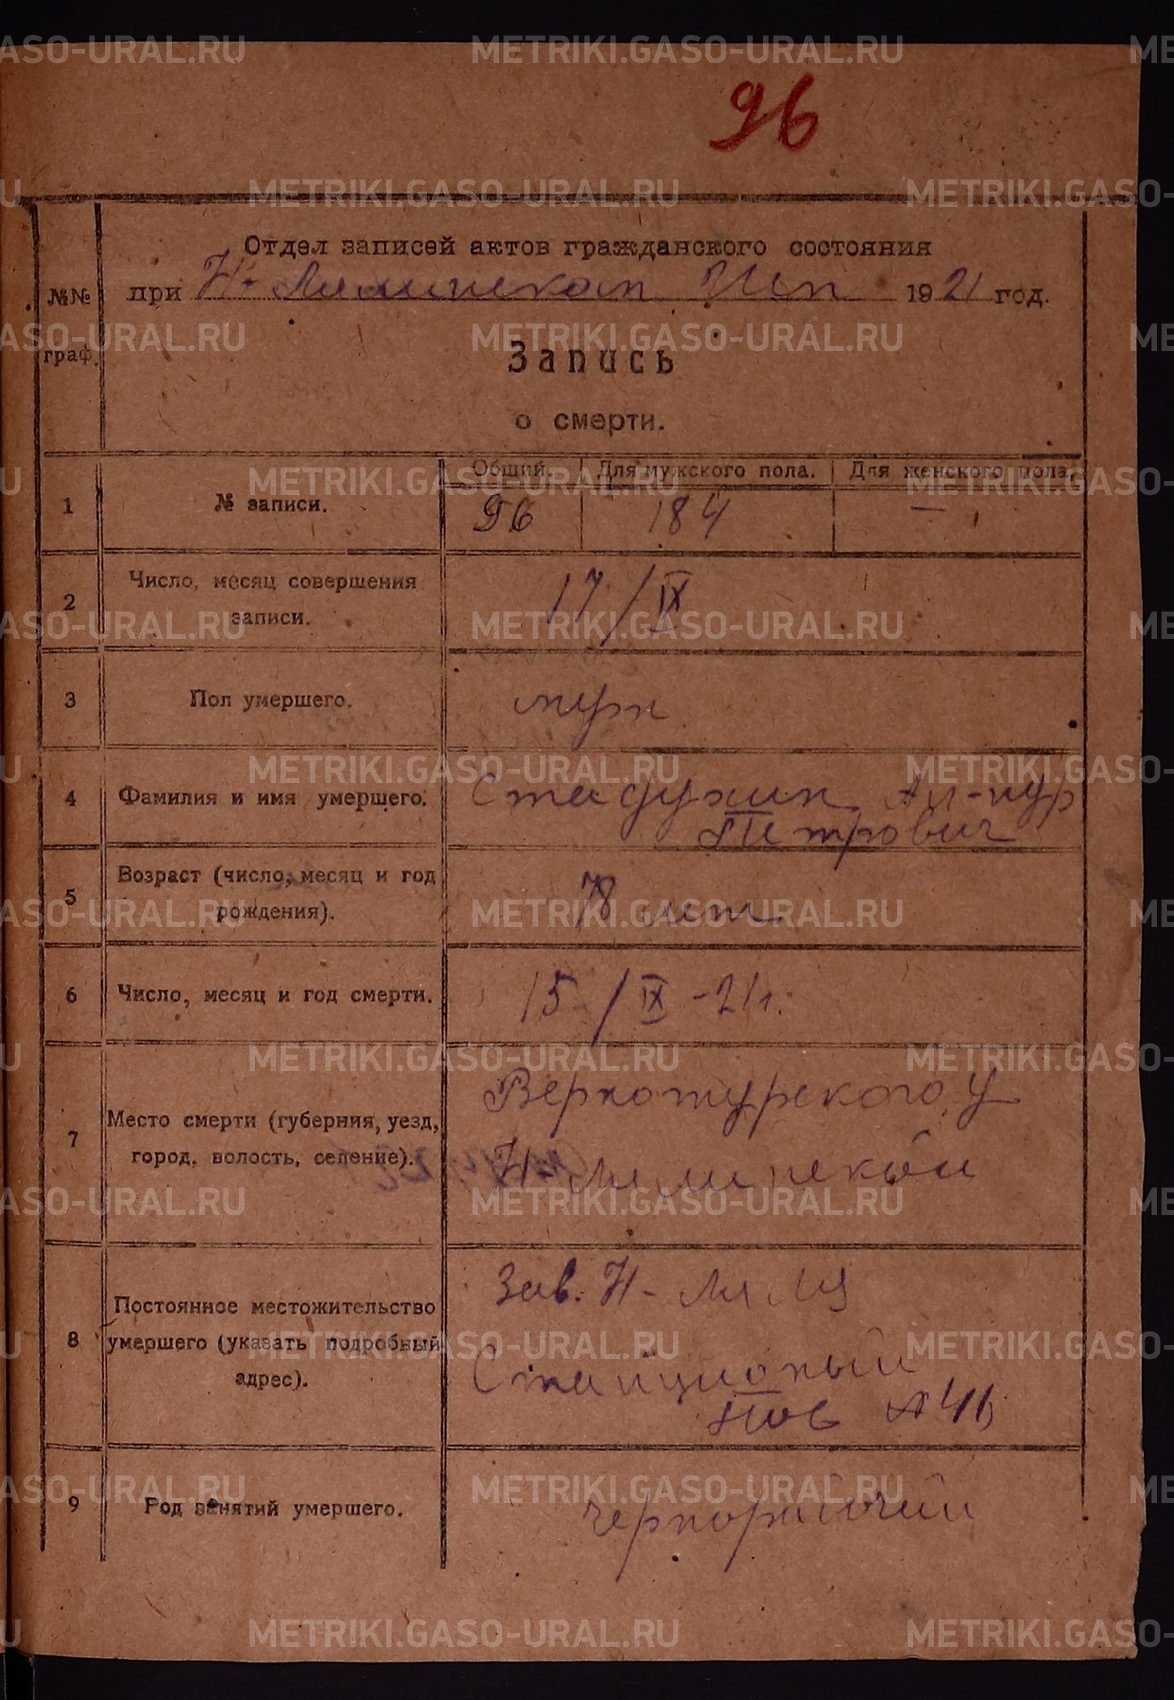 96
Отдел записей актов гражданского состояния
№№ граф.
при Н-Лялинском 1921 год.
Запись
о смерти.
Общий. Для мужского пола. Для женского пола.
1 № записи. 96 184 —
2 Число, месяц совершения
записи. 17/IX
3 Пол умершего. муж
4 Фамилия и имя умершего. Стадухин
Петрович
5 Возраст (число, месяц и год
рождения). 78 лет
6 Число, месяц и год смерти. 15/IX-21г.
Верхотурского У
7 Место смерти (губерния, уезд,
город, волость, селение). Н-Лялинской
Зав. Н-Ляля
8 Постоянное местожительство
умершего (указать подробный
адрес).
№ 46
9 Род занятий умершего. чернорабочий
METRIKI.GASO-URAL.RU